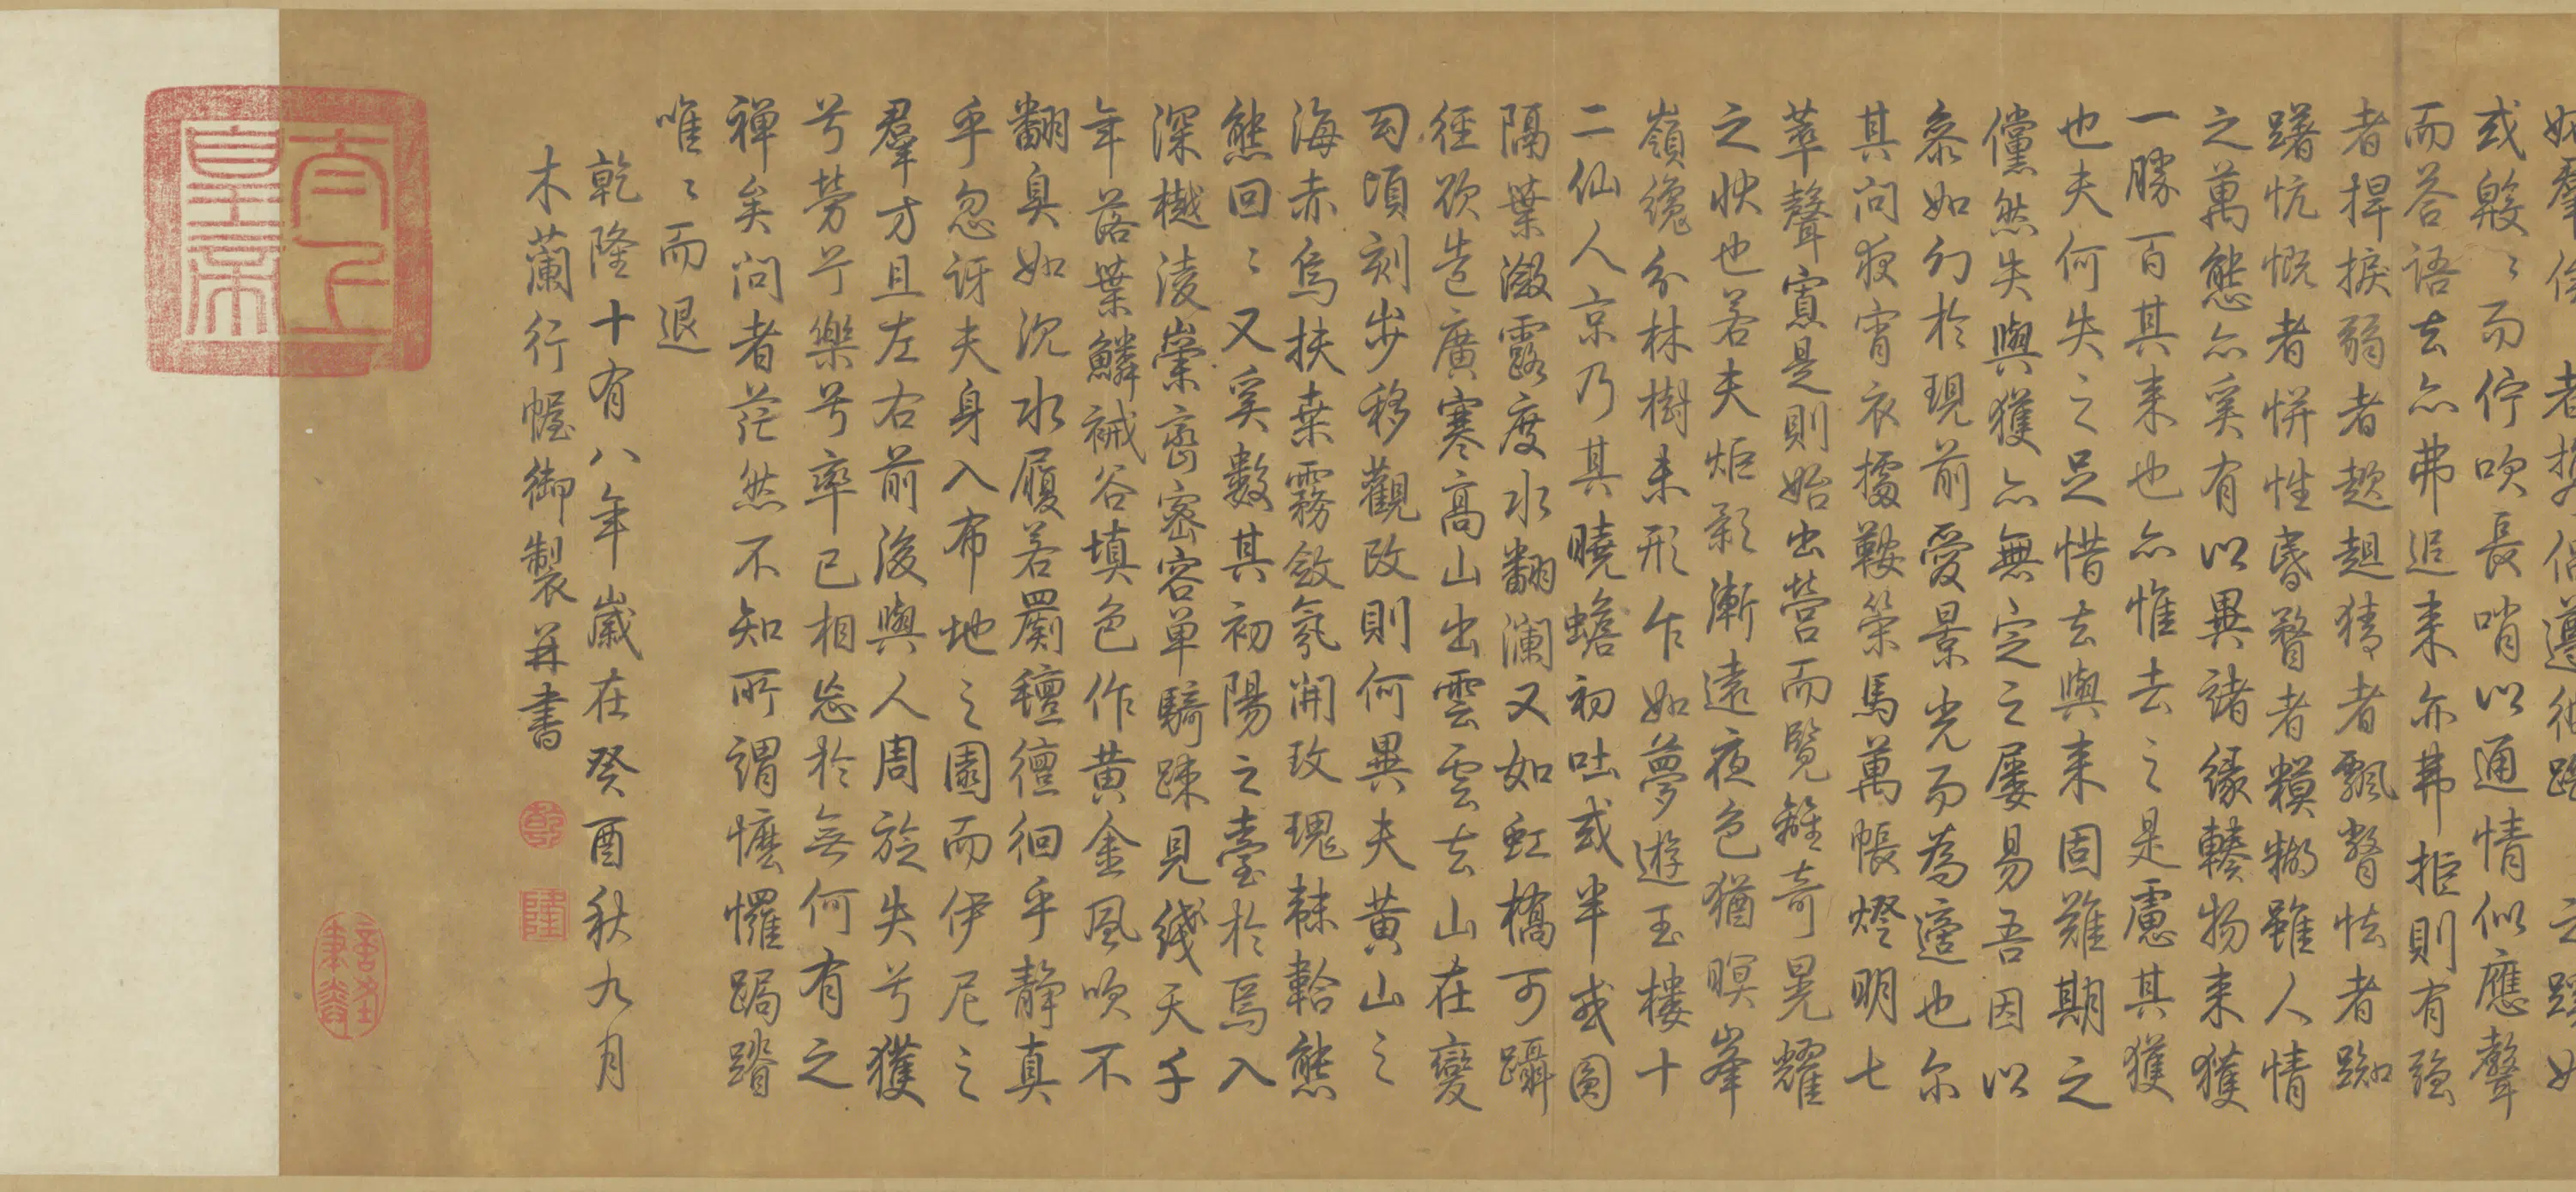 或毅〻而佇吹長哨以通情似應聲
而答語去亦弗追来亦弗拒則有强
者捍掞弱者趑趄猜者飄瞥怯者踟
躇忼慨者恲性昏瞀者糢糊雖人情
之萬態亦奚有以異諸緣轃物来獲
一勝百其来也亦惟去之是慮其獲
也夫何失之足惜去與来固難期之
儻然失與獲亦無定之屢易吾因以
叅如幻於現前愛景光而為適也尔
其問夜宵衣據鞍策馬萬帳燈明七
萃聲寔是則始出營而覽離奇晃耀
之快也若夫炬影漸遠夜色猶暝峯
嶺纔分林樹未形乍如夢遊玉樓十
二仙人京乃其曉蟾初吐或半或圓
隔葉漵露度水翻瀾又如虹橋可躡
徑欲造廣寒高山出雲雲去山在變
幻頃刻步移觀改則何異夫黄山之
海赤烏扶桒霧斂氛開玫瑰韎韐態
態回〻又奚數其初陽之臺於焉入
深樾淩崇巒密容單騎踈見綫天千
年落葉鱗祴谷填色作黄金風吹不
翻臭如沉水履若罽氊徊徊乎静真
乎忽訝夫身入布地之園而伊尼之
羣方且左右前後與人周旋失兮獲
兮勞兮樂兮率已相忘於無何有之
禪矣问者茫然不知所謂懡㦬跼蹐
唯〻而退
乾隆十有八年歲在癸酉秋九月
木蘭行幄御製并書
乾
隆
太上
皇帝